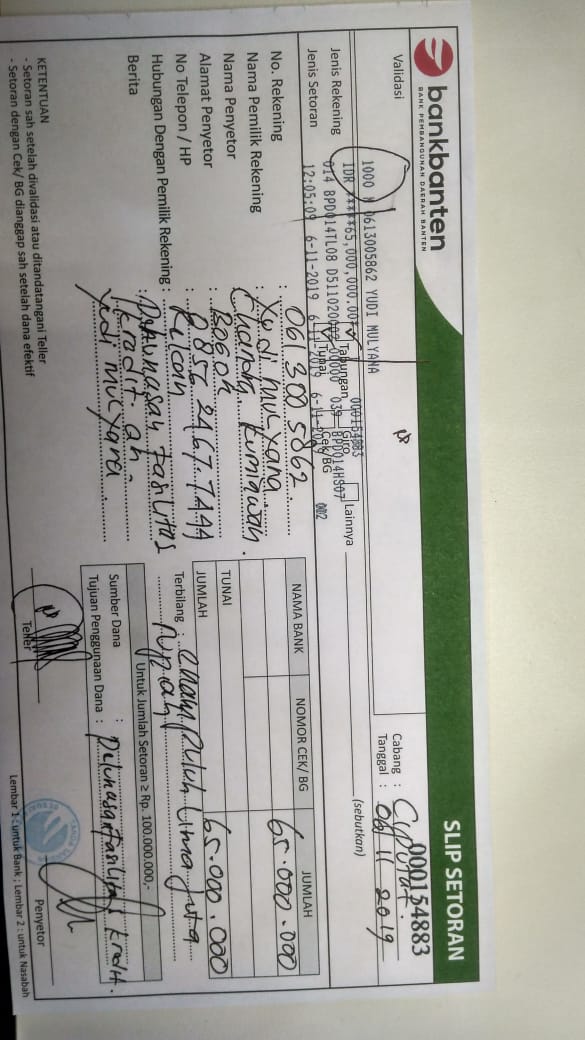 bankbanten
BANK PEMBANGUNAN DAERAH BANTEN
SLIP SETORAN
000154883
Validasi
Cabang : Ciputat.
Tanggal : 06 11 2019
1000 0613005862 YUDI MULYANA 000154883
IDR *****65,000,000.00
014 BPD014TL08 D5110200 00000 039 BPD014HS07
12:05:09 6-11-2019 6-11-2019 6-11-2019 002
Jenis Rekening Tabungan Giro Lainnya (sebutkan)
Jenis Setoran Tunai Cek/BG
No. Rekening : 0613005862
Nama Pemilik Rekening : Yudi Mulyana
Nama Penyetor : Chandra Kurniawan.
Alamat Penyetor : Bogor
No Telepon / HP : 0856 2467.7444
Hubungan Dengan Pemilik Rekening :
Berita : Pelunasan Fasilitas
kredit an-
Yudi Mulyana
NAMA BANK NOMOR CEK/ BG JUMLAH
65.000.000
TUNAI
JUMLAH 65.000.000
Terbilang : enam puluh lima juta
rupiah
Untuk Jumlah Setoran ≥ Rp. 100.000.000,-
Sumber Dana :
Tujuan Penggunaan Dana : Pelunasan Fasilitas kredit.
KETENTUAN
- Setoran sah setelah divalidasi atau ditandatangani Teller
- Setoran dengan Cek/ BG dianggap sah setelah dana efektif
Teller Penyetor
Lembar 1 : untuk Bank ; Lembar 2 : untuk Nasabah